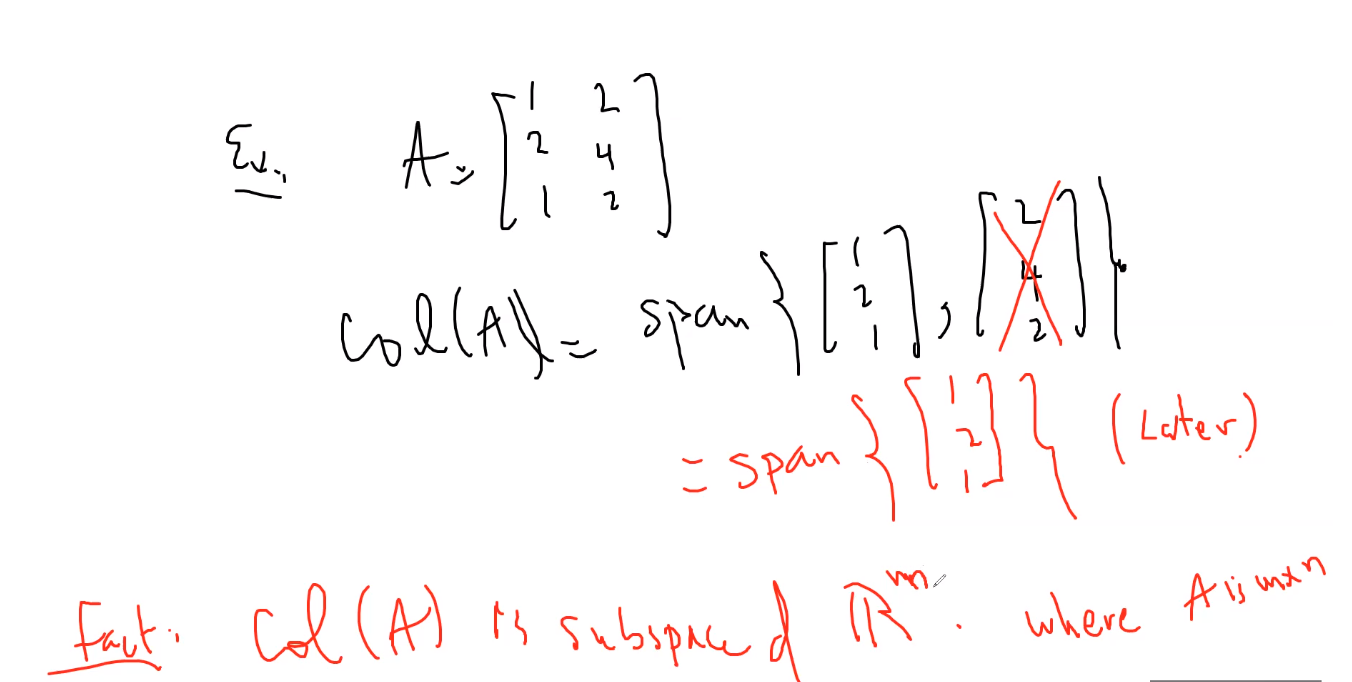 Ex. A = [1 2; 2 4; 1 2]
Col(A) = span { [1 2 1], [2 4 2] }
= span { [1 2 1] } (Later)
Fact: Col(A) is subspace of ℝᵐ. where A is m×n